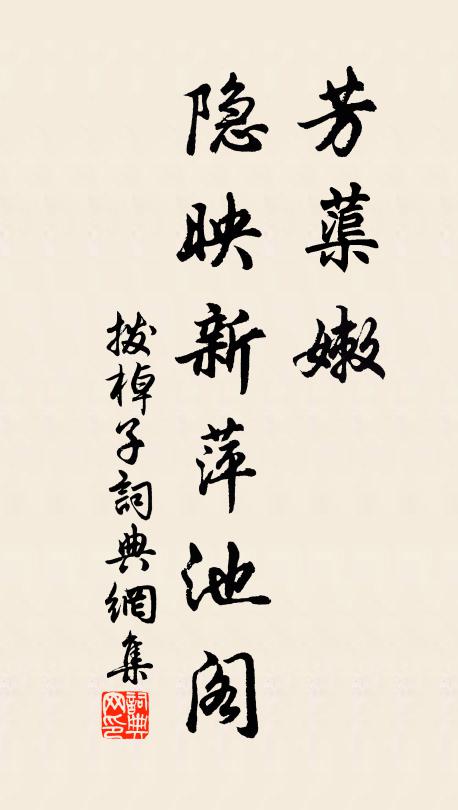 芳蕖嫩
隐映新萍池阁
拨棹子詞典網集
詞典网印